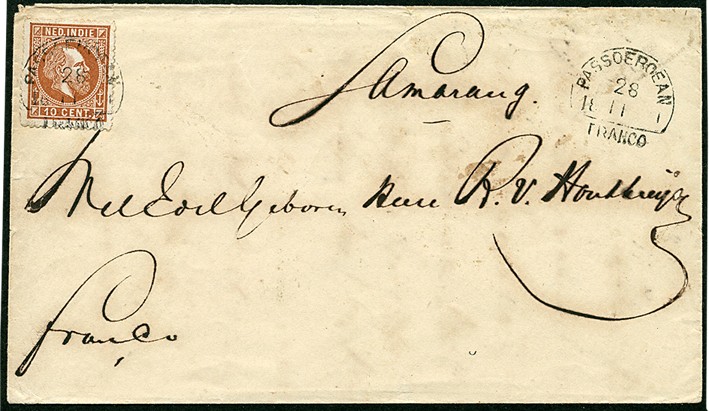 NED. INDIE
10 CENT.
28
FRANCO
PASSOEROEAN
28
18 11 1
FRANCO
Samarang.
Wel Edel Geboren Heer R. V.
franco